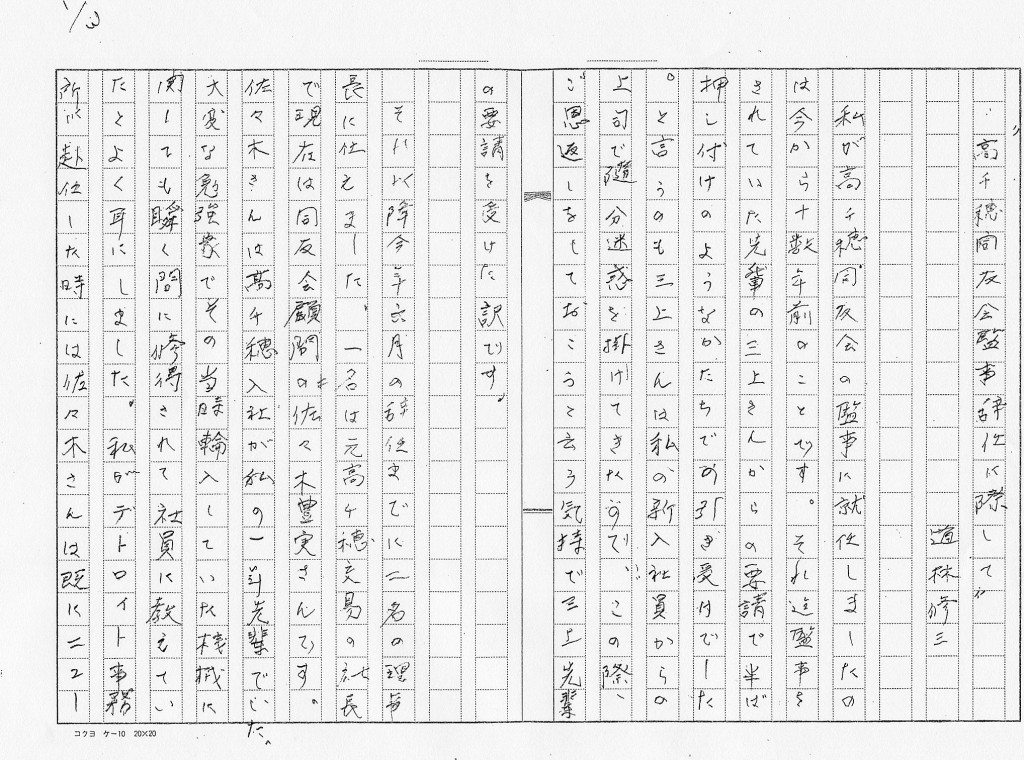 1/3
"高千穂同友会監事辞任に際して"
道林修三
私が高千穂同友会の監事に就任しましたの
は今から十数年前のことです。それ迄監事を
されていた先輩の三上さんからの要請で半ば
押し付けのようなかたちでの引き受けでした
。と言うのも三上さんは私の新入社員からの
上司で随分迷惑を掛けてきたので、この際、
ご恩返しをしておこうと云う気持で三上先輩
の要請を受けた訳です。
それ以降今年六月の辞任までに二名の理事
長に仕えました。一名は元高千穂交易の社長
で現在は同友会顧問の佐々木豊実さんです。
佐々木さんは高千穂入社が私の一年先輩でした。
大変な勉強家でその当時輸入していた機械に
関しても瞬く間に修得されて社員に教えてい
たとよく耳にしました。私がデトロイト事務
所に赴任した時には佐々木さんは既にニュー
コクヨ ケー10 20×20